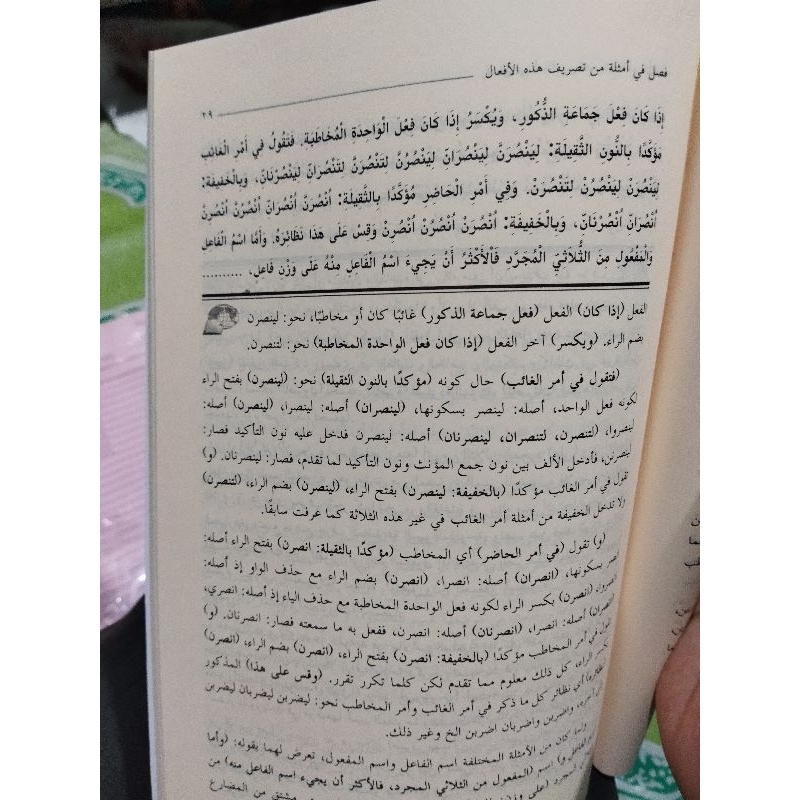 فصل في أمثلة من تصريف هذه الأفعال
٢٩
إِذَا كَانَ فِعْلَ جَمَاعَةِ الذُّكُورِ، وَيُكْسَرُ إِذَا كَانَ فِعْلَ الْوَاحِدَةِ الْمُخَاطَبَةِ. فَتَقُولُ فِي أَمْرِ الْغَائِبِ
مُؤَكَّدًا بِالنُّونِ الثَّقِيلَةِ: لِيَنْصُرَنَّ لِيَنْصُرَانِّ لِيَنْصُرُنَّ لِتَنْصُرَنَّ لِتَنْصُرَانِّ لِيَنْصُرْنَانِّ، وَبِالْخَفِيفَةِ:
لِيَنْصُرَنْ لِيَنْصُرُنْ لِتَنْصُرَنْ. وَفِي أَمْرِ الْحَاضِرِ مُؤَكَّدًا بِالثَّقِيلَةِ: اُنْصُرَنَّ اُنْصُرَانِّ اُنْصُرُنَّ اُنْصُرِنَّ
اُنْصُرَانِّ اُنْصُرْنَانِّ، وَبِالْخَفِيفَةِ: اُنْصُرَنْ اُنْصُرُنْ اُنْصُرِنْ وَقِسْ عَلَى هَذَا نَظَائِرَهُ. وَأَمَّا اسْمُ الْفَاعِلِ
وَالْمَفْعُولِ مِنَ الثُّلَاثِيِّ الْمُجَرَّدِ فَالْأَكْثَرُ أَنْ يَجِيءَ اسْمُ الْفَاعِلِ مِنْهُ عَلَى وَزْنِ فَاعِلٍ، ..........
الفعل (إذا كان) الفعل (فعل جماعة الذكور) غائبًا كان أو مخاطبًا، نحو: لينصرن
بضم الراء. (ويكسر) آخر الفعل (إذا كان فعل الواحدة المخاطبة) نحو: لتنصرن.
(فتقول في أمر الغائب) حال كونه (مؤكدًا بالنون الثقيلة) نحو: (لينصرن) بفتح الراء
لكونه فعل الواحد، أصله: لينصر بسكونها، (لينصران) أصله: لينصرا، (لينصرن) أصله:
لينصروا، (لتنصرن، لتنصران، لينصرنان) أصله: لينصرن فدخل عليه نون التأكيد فصار:
لينصرنن، فأدخل الألف بين نون جمع المؤنث ونون التأكيد لما تقدم، فصار: لينصرنان. (و)
تقول في أمر الغائب مؤكدًا (بالخفيفة: لينصرن) بفتح الراء، (لينصرن) بضم الراء، (لتنصرن)
ولا تدخل الخفيفة من أمثلة أمر الغائب في غير هذه الثلاثة كما عرفت سابقًا.
(و) تقول (في أمر الحاضر) أي المخاطب (مؤكدًا بالثقيلة: انصرن) بفتح الراء أصله:
انصر بسكونها، (انصران) أصله: انصرا، (انصرن) بضم الراء مع حذف الواو إذ أصله:
انصروا، (انصرن) بكسر الراء لكونه فعل الواحدة المخاطبة مع حذف الياء إذ أصله: انصري،
(انصران) أصله: انصرا، (انصرنان) أصله: انصرن، ففعل به ما سمعته فصار: انصرنان. (و)
تقول في أمر المخاطب مؤكدًا (بالخفيفة: انصرن) بفتح الراء، (انصرن) بضم الراء، (انصرن)
بكسر الراء، كل ذلك معلوم مما تقدم لكن كلما تكرر تقرر. (وقس على هذا) المذكور
(نظائره) أي نظائر كل ما ذكر في أمر الغائب وأمر المخاطب نحو: ليضربن ليضربان ليضربن
واضربن واضربان اضربن الخ وغير ذلك.
كان من الأمثلة المختلفة اسم الفاعل واسم المفعول، تعرض لهما بقوله: (وأما
اسم (المفعول من الثلاثي المجرد، فالأكثر أن يجيء اسم الفاعل منه) من
المجرد (على وزن مشتق من المضارع